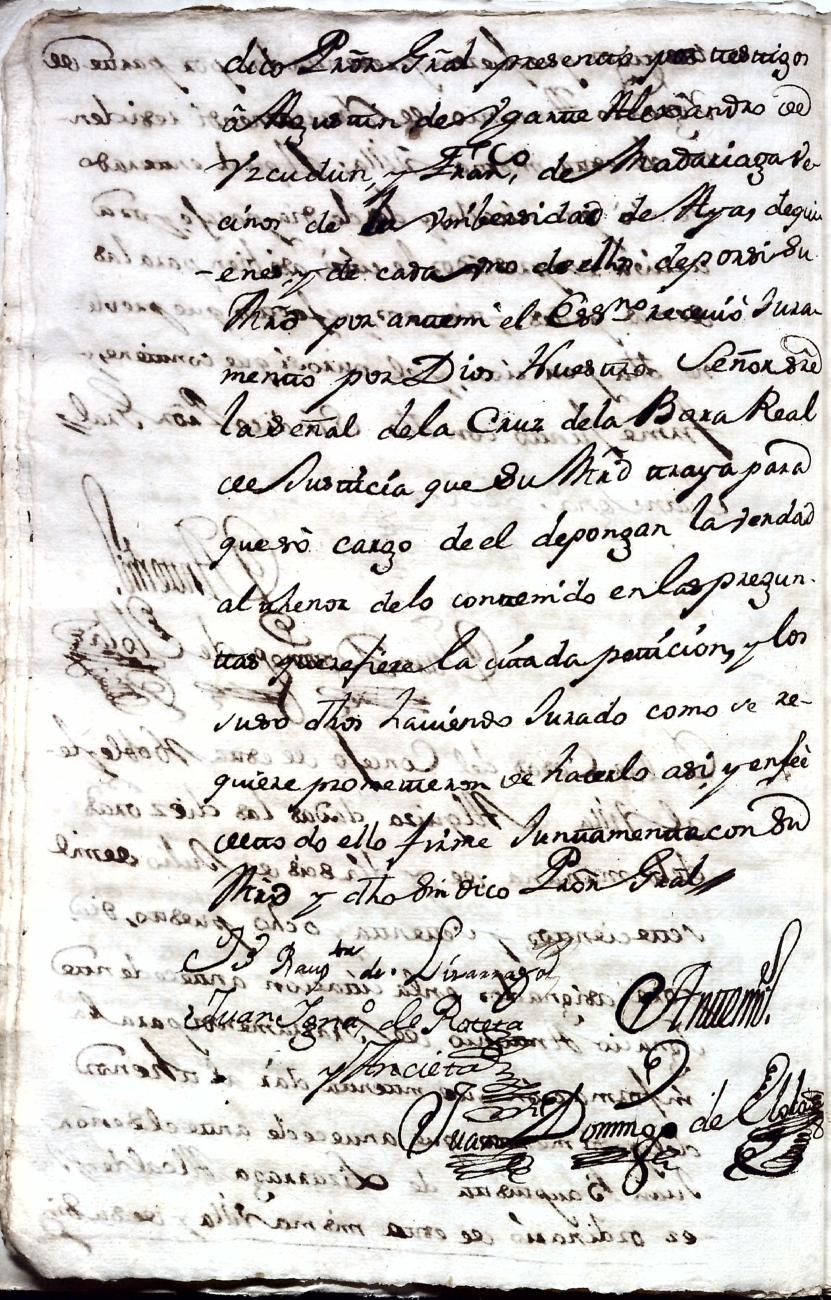 dico Prōr Gr̄al presento por testigos
â Agustin de Ygartte Alexandro de
Vzcudun, y Franco, de Madariaga ve-
cinos de la Vnibersidad de Ayas, dequi-
enes, y de cada vno de ellos deporsi su
Mrd por antemi el Essno reciuió Jura-
mento por Dios Nuestro Señor sre
la señal dela Cruz dela Bara Real
de Justticia que su Mrd ttraya para
quesò cargo de el depongan la verdad
al thenor delo conttenido enlas pregun-
ttas querefiere la cittada petticion, y los
suso dhos hauiendo Jurado como se re-
quiere promettieron de hacerlo asi, y enfeê
dettodo ello firme Junttamente con su
Mrd y dho Sindico Prōr Gral
Jn Baupta de Lizarraga
Juan Ignaº de Roteta
y Ancieta
Antemi
Juan Domingo de